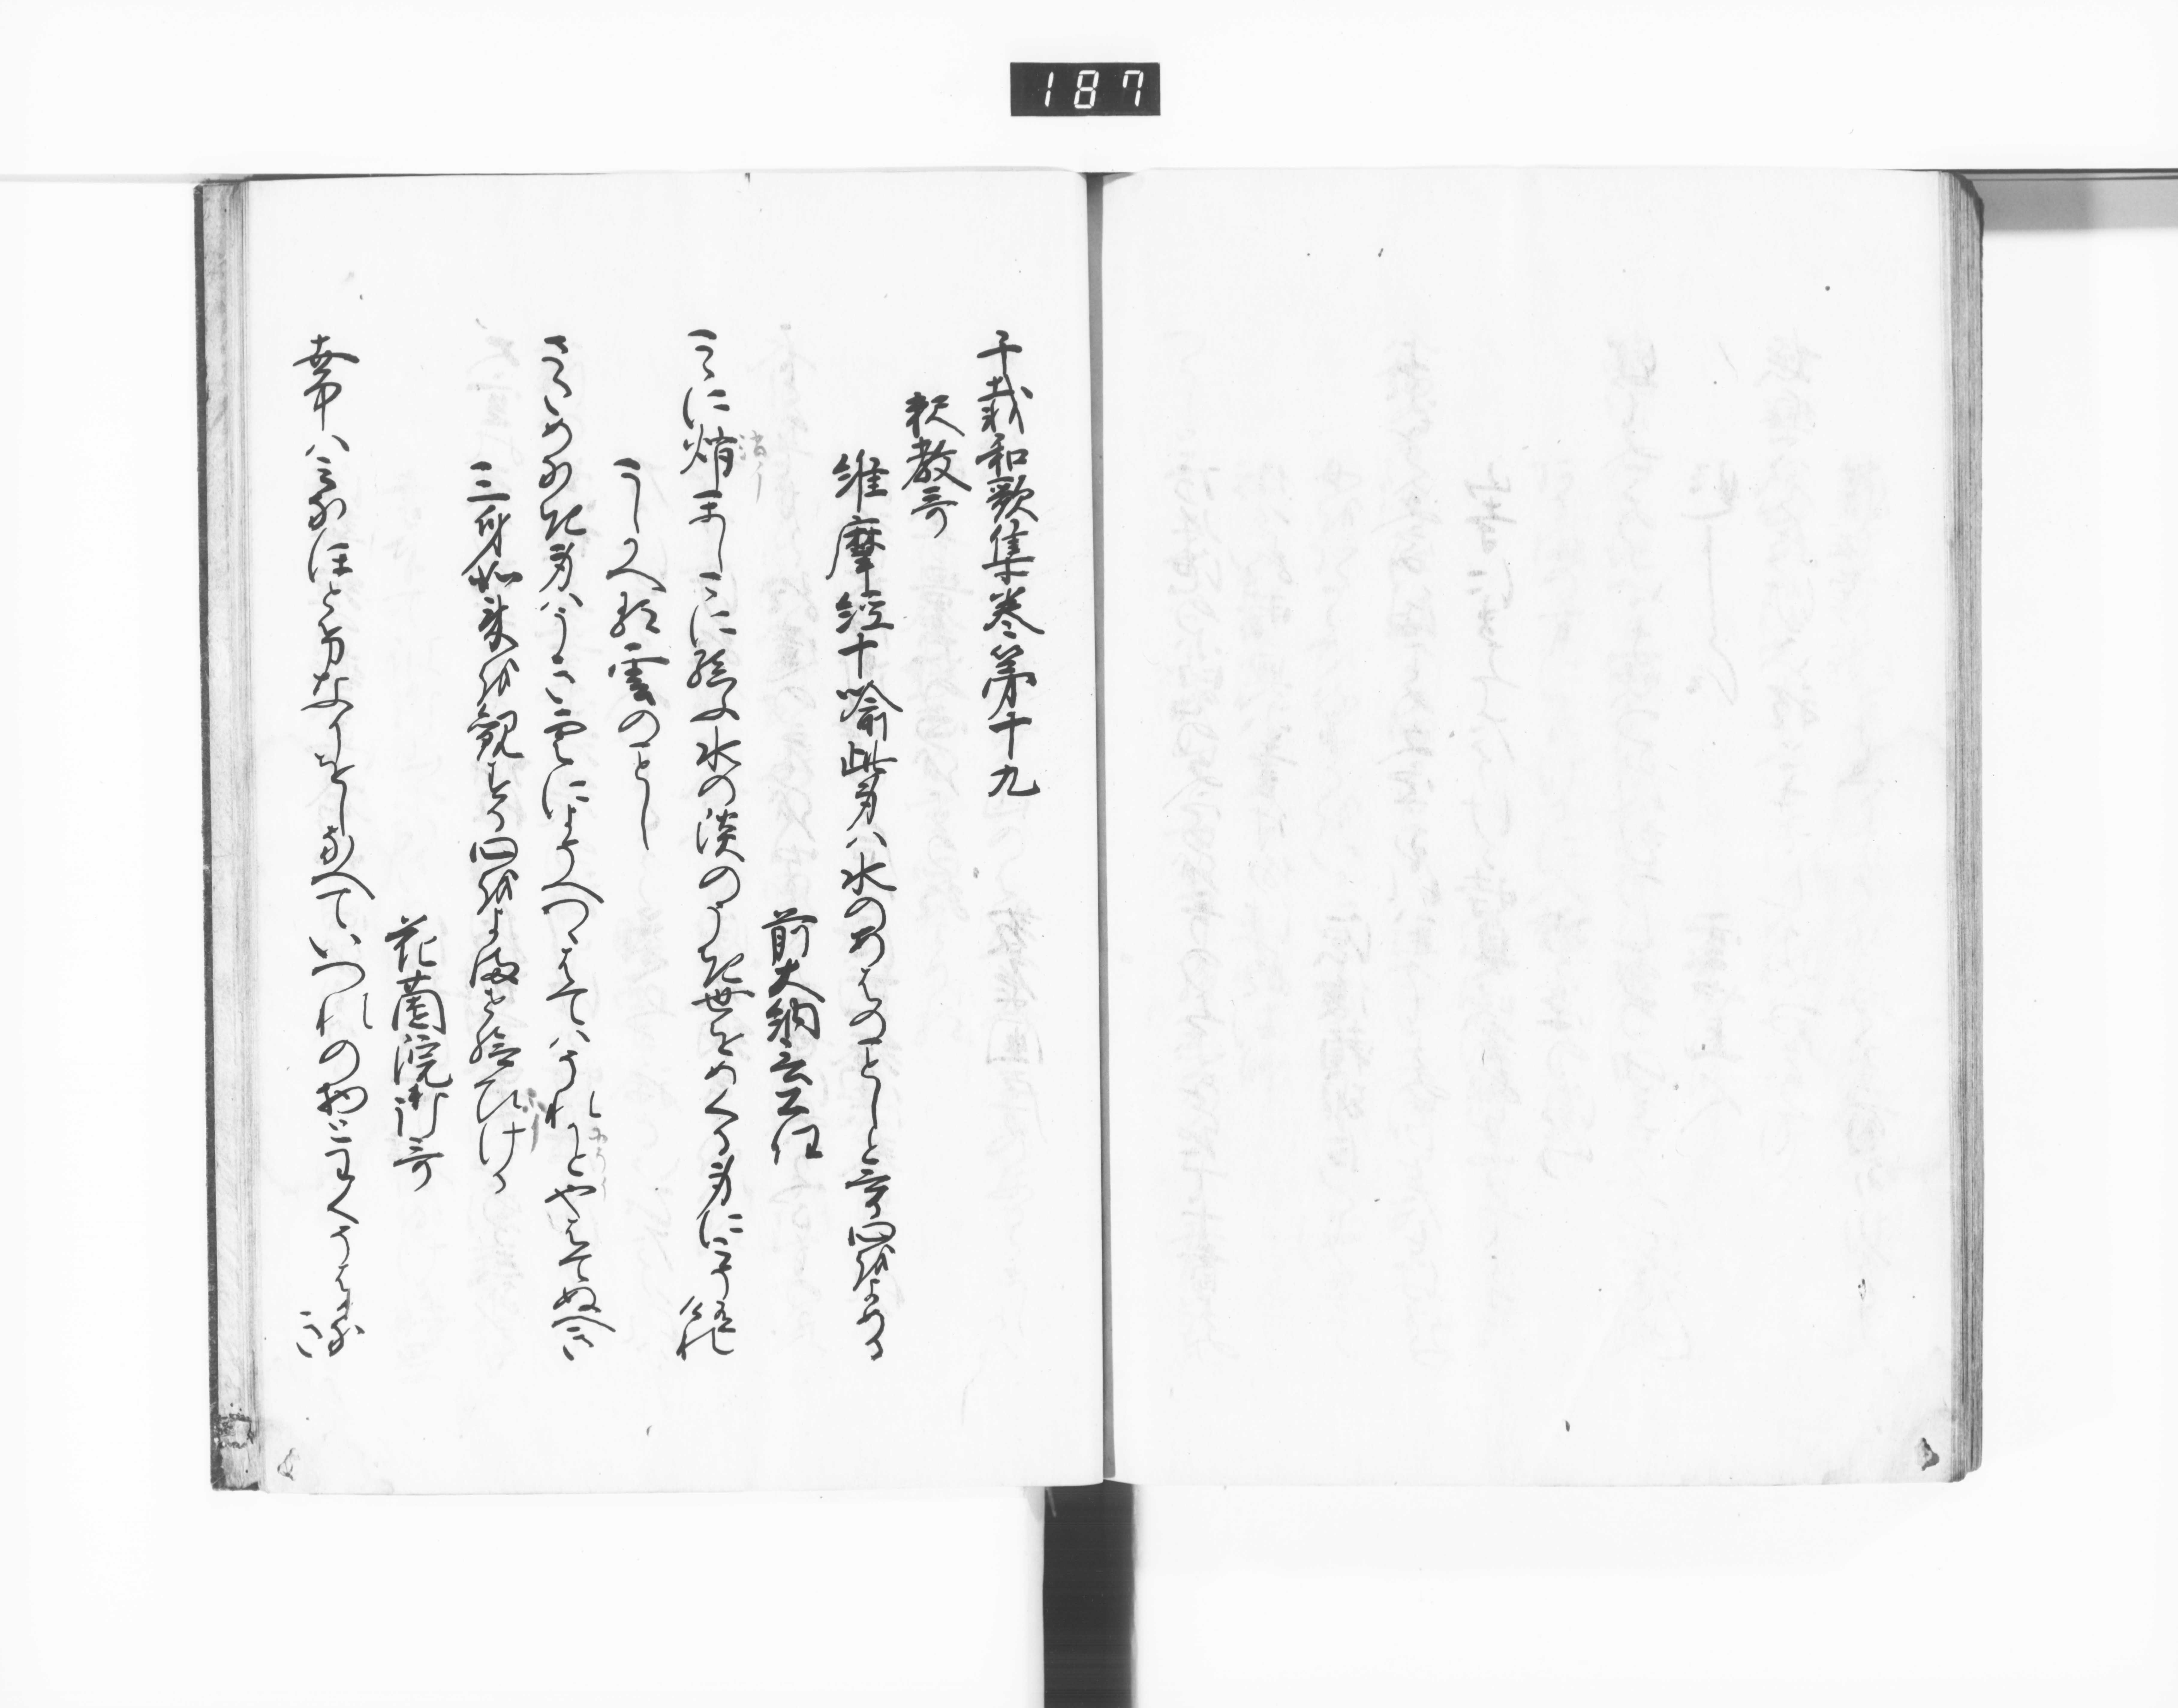 187
千載和歌集巻第十九
釈教哥
維摩経十喩此身ハ水のあはのことしと云心をよめる
前大納言公任
こゝに燋かしこに結ふ水の淡のうき世をめくる身にこそ有けれ
うかへる雲のことし
さためなき身ハうき雲によそへつゝはてハそれとやはてぬへき
三身如来を観する心をよませ給ひける
花薗院御哥
世中ハみなほとけなりをしなへていつれの物とわくそはかなき